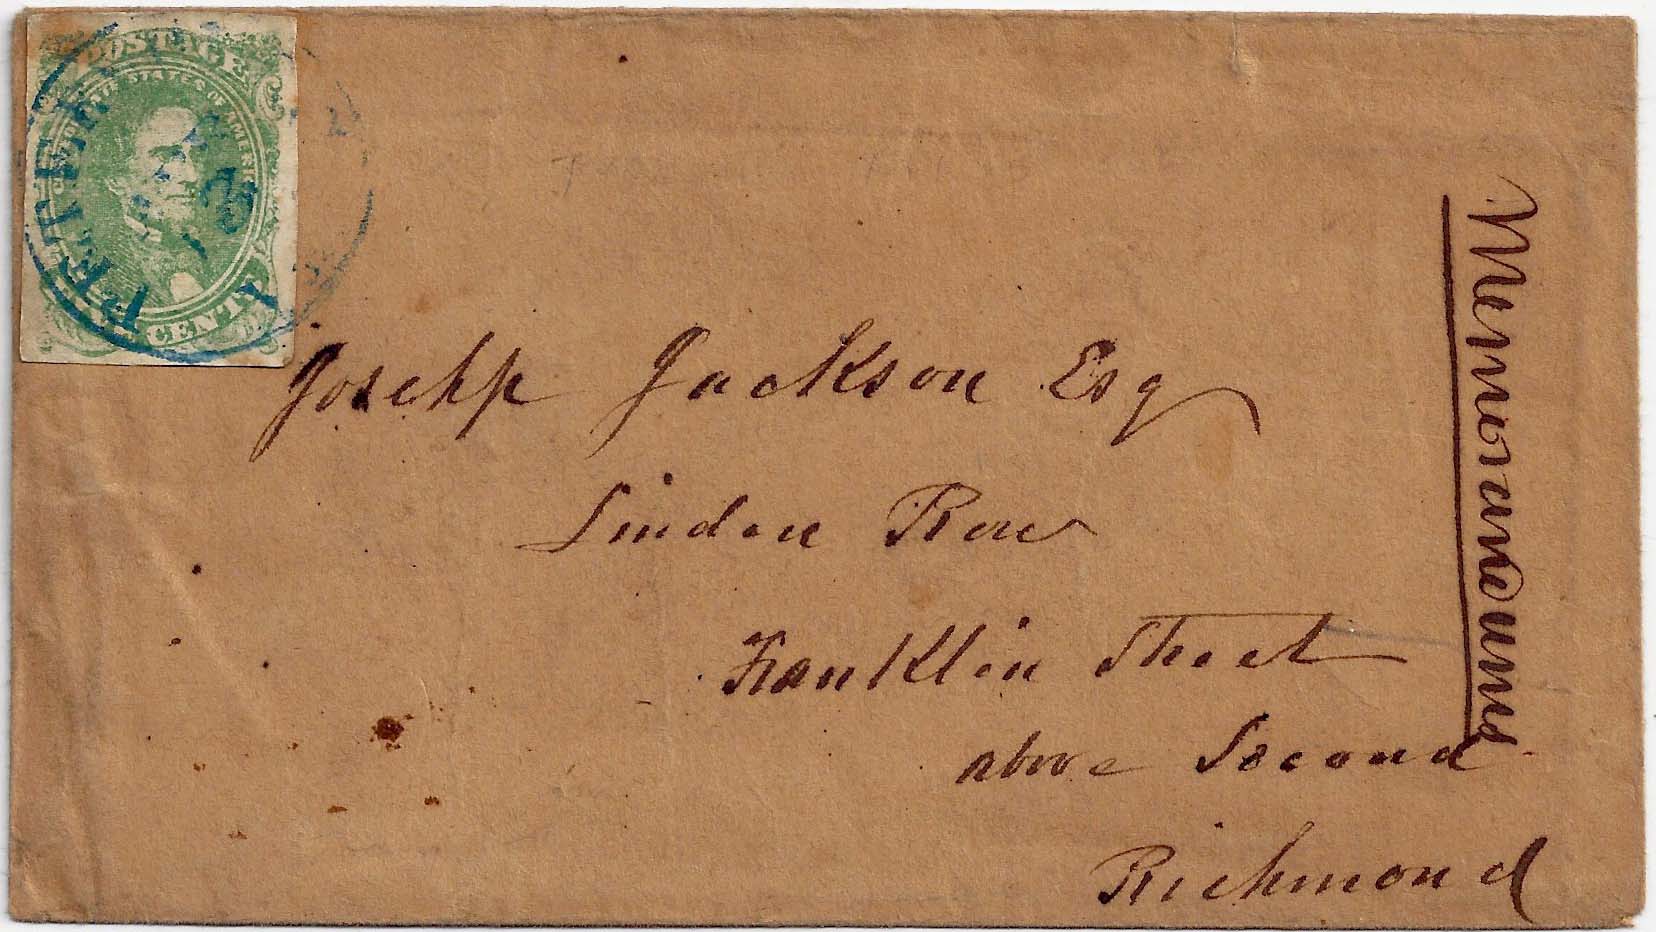 POSTAGE
CONFEDERATE STATES OF AMERICA
CENTS
PETER
Josehp Jackson Esq
Linden Row
Franklin Street
above Second
Richmond
Memorandums